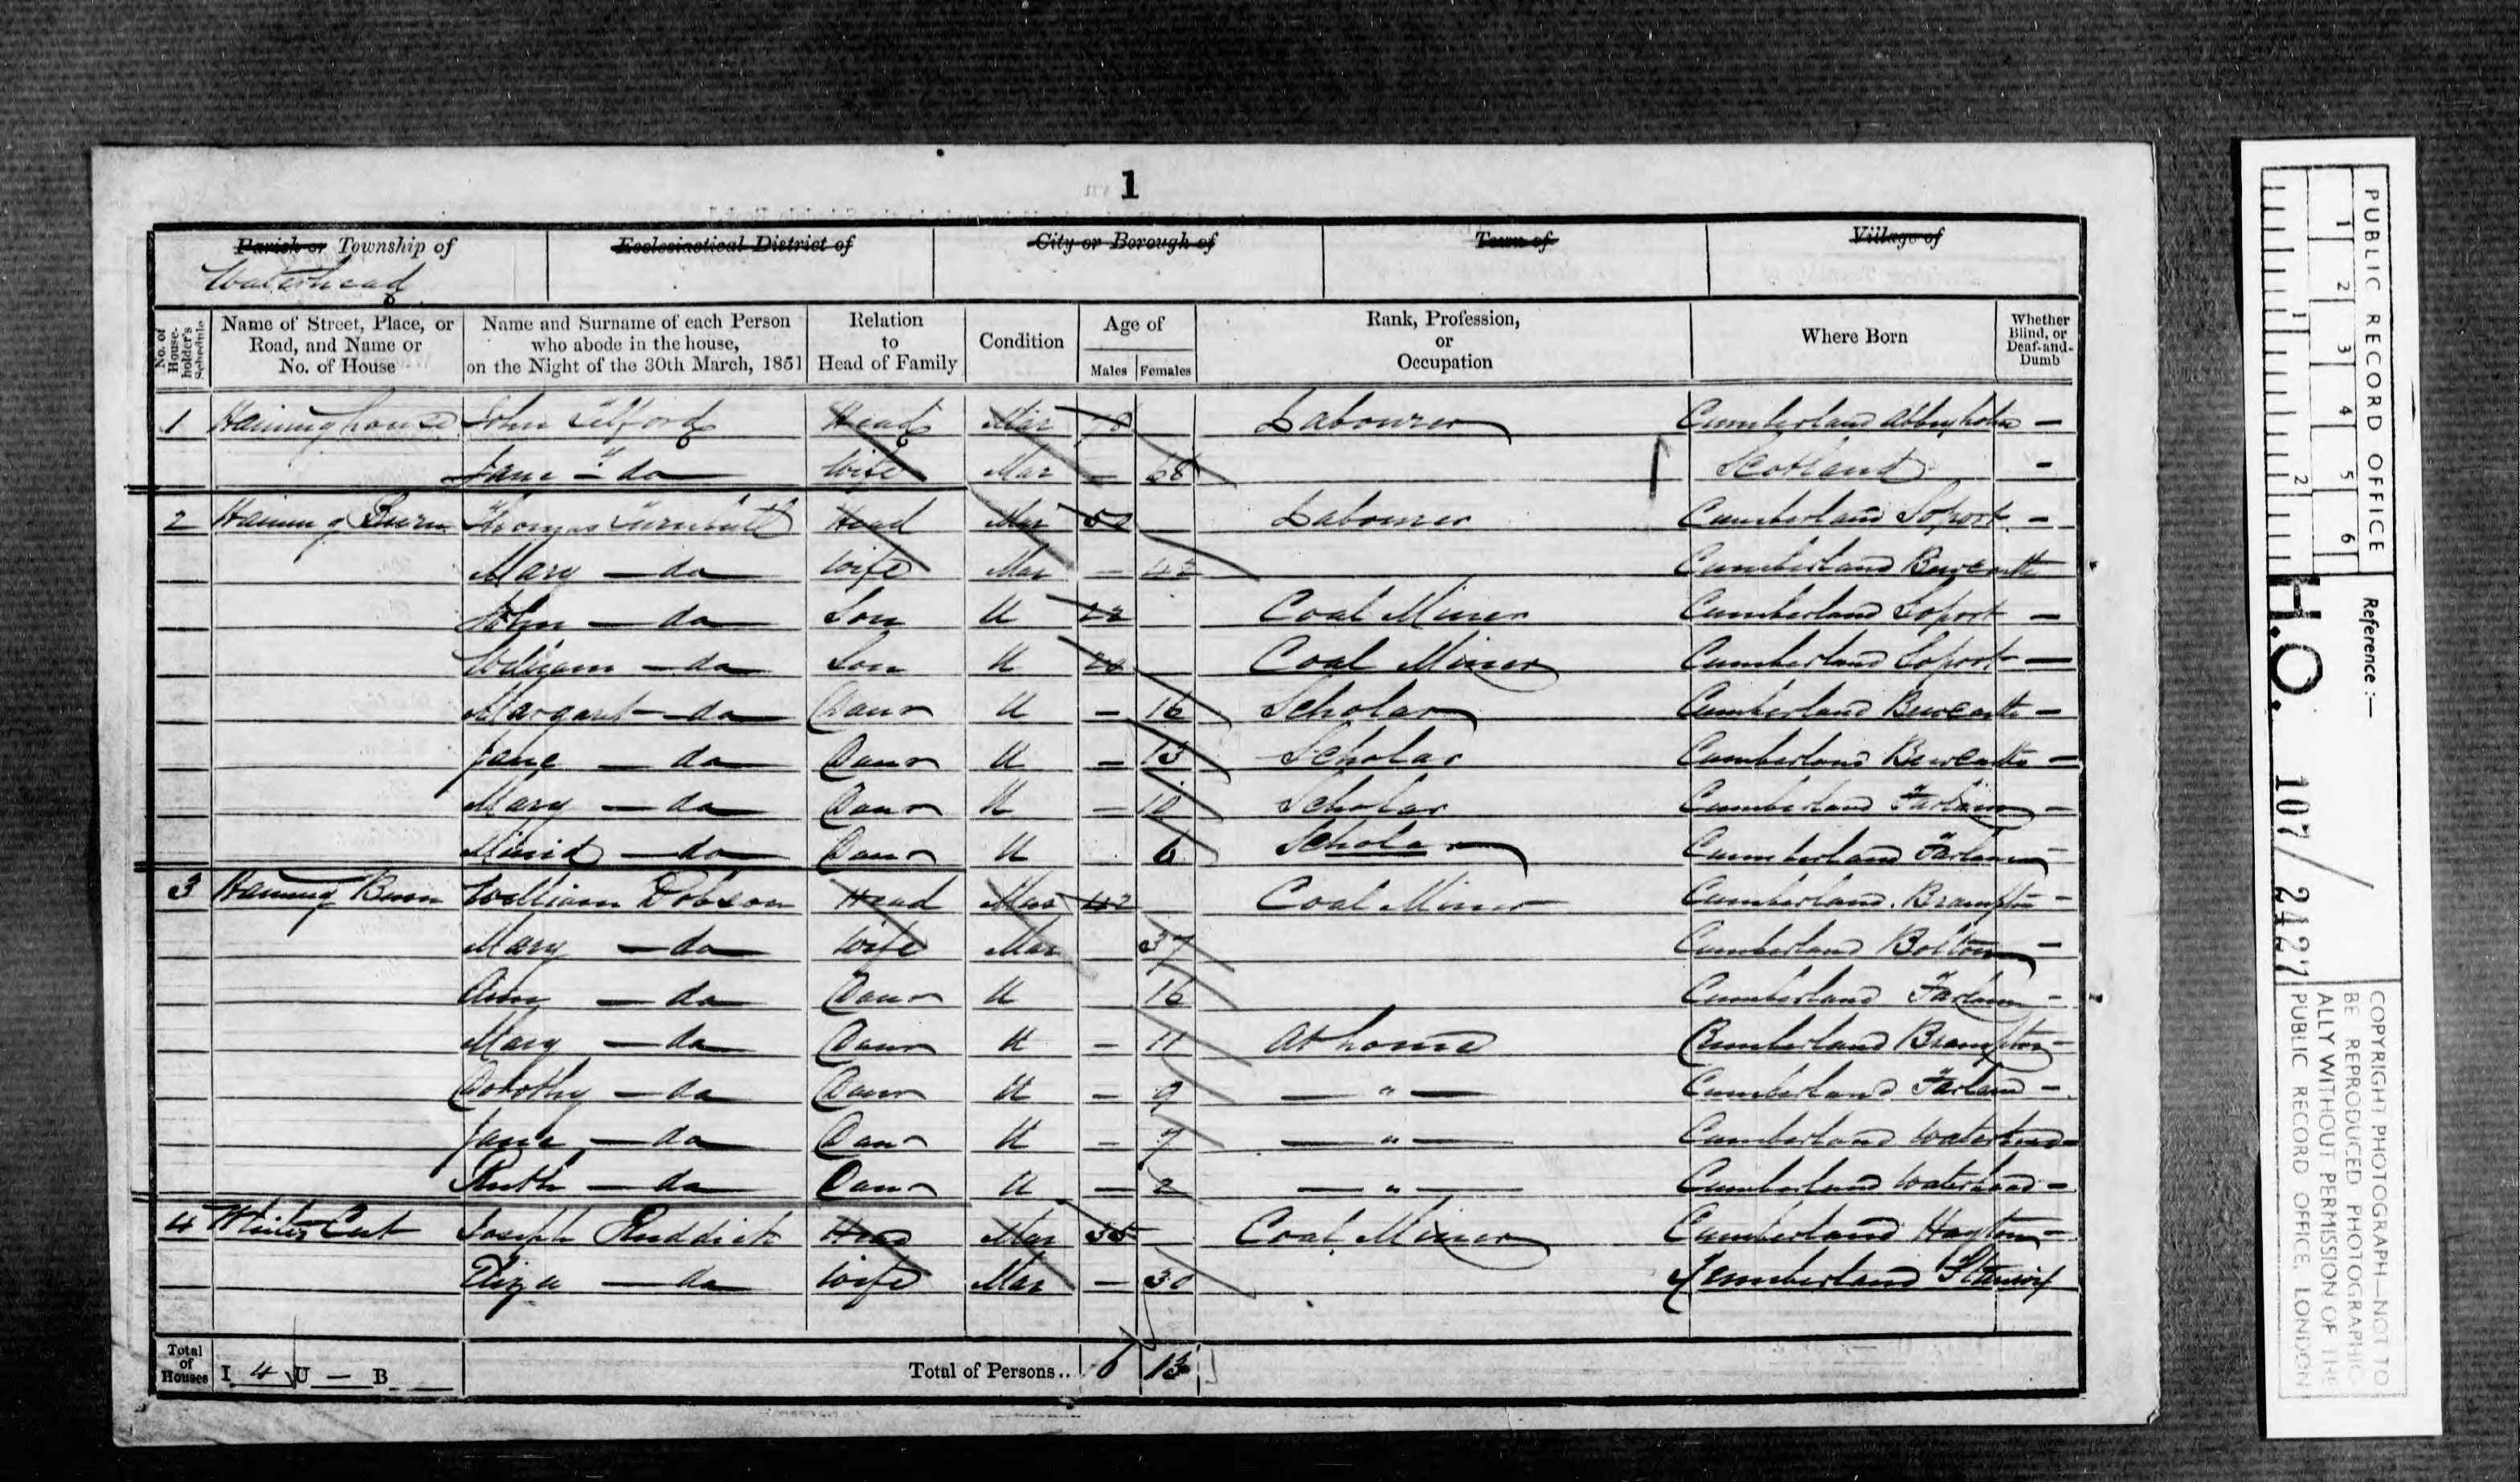 1
Parish or Township of
Ecclesiastical District of
City or Borough of
Town of
Village of
Waterhead
No. of House-holder's Schedule
Name of Street, Place, or Road, and Name or No. of House
Name and Surname of each Person who abode in the house, on the Night of the 30th March, 1851
Relation to Head of Family
Condition
Age of
Males
Females
Rank, Profession, or Occupation
Where Born
Whether Blind, or Deaf-and-Dumb
1 Haining house John Telford Head Mar 78 Labourer Cumberland Abbeyholm —
Jane — do Wife Mar — 68 Scotland -
2 Haining Burn Thomas Turnbull Head Mar Labourer Cumberland Soport -
Mary — do Wife Mar — Cumberland Bewcastle
John — do Son U 22 Coal Miner Cumberland Soport —
William — do Son U 20 Coal Miner Cumberland Soport —
Margaret — do Daur U — 16 Scholar Cumberland Bewcastle —
Jane — do Daur U — 13 Scholar Cumberland Bewcastle —
Mary — do Daur U — 10 Scholar Cumberland Farlam -
— do Daur U 6 Scholar Cumberland Farlam -
3 Haining Burn William Dobson Head Mar 42 Coal Miner Cumberland Brampton -
Mary — do Wife Mar 37 Cumberland Bolton —
Ann — do Daur U 16 Cumberland Farlam -
Mary — do Daur U — 11 At home Cumberland Brampton -
Dorothy — do Daur U — 9 — " — Cumberland Farlam -
Jane — do Daur U — 7 — " — Cumberland Waterhead -
Ruth — do Daur U — 2 — " — Cumberland Waterhead -
4 Cut Joseph Ruddick Head Mar 35 Coal Miner Cumberland Hayton -
Eliza — do Wife Mar — 30 Cumberland Stanwix
Total of Houses
I 4 U — B —
Total of Persons.. 6 13
PUBLIC RECORD OFFICE
1 2 3 4 5 6
1 2
Reference :—
H.O. 107/2427
COPYRIGHT PHOTOGRAPH—NOT TO
BE REPRODUCED PHOTOGRAPHIC-
ALLY WITHOUT PERMISSION OF THE
PUBLIC RECORD OFFICE, LONDON